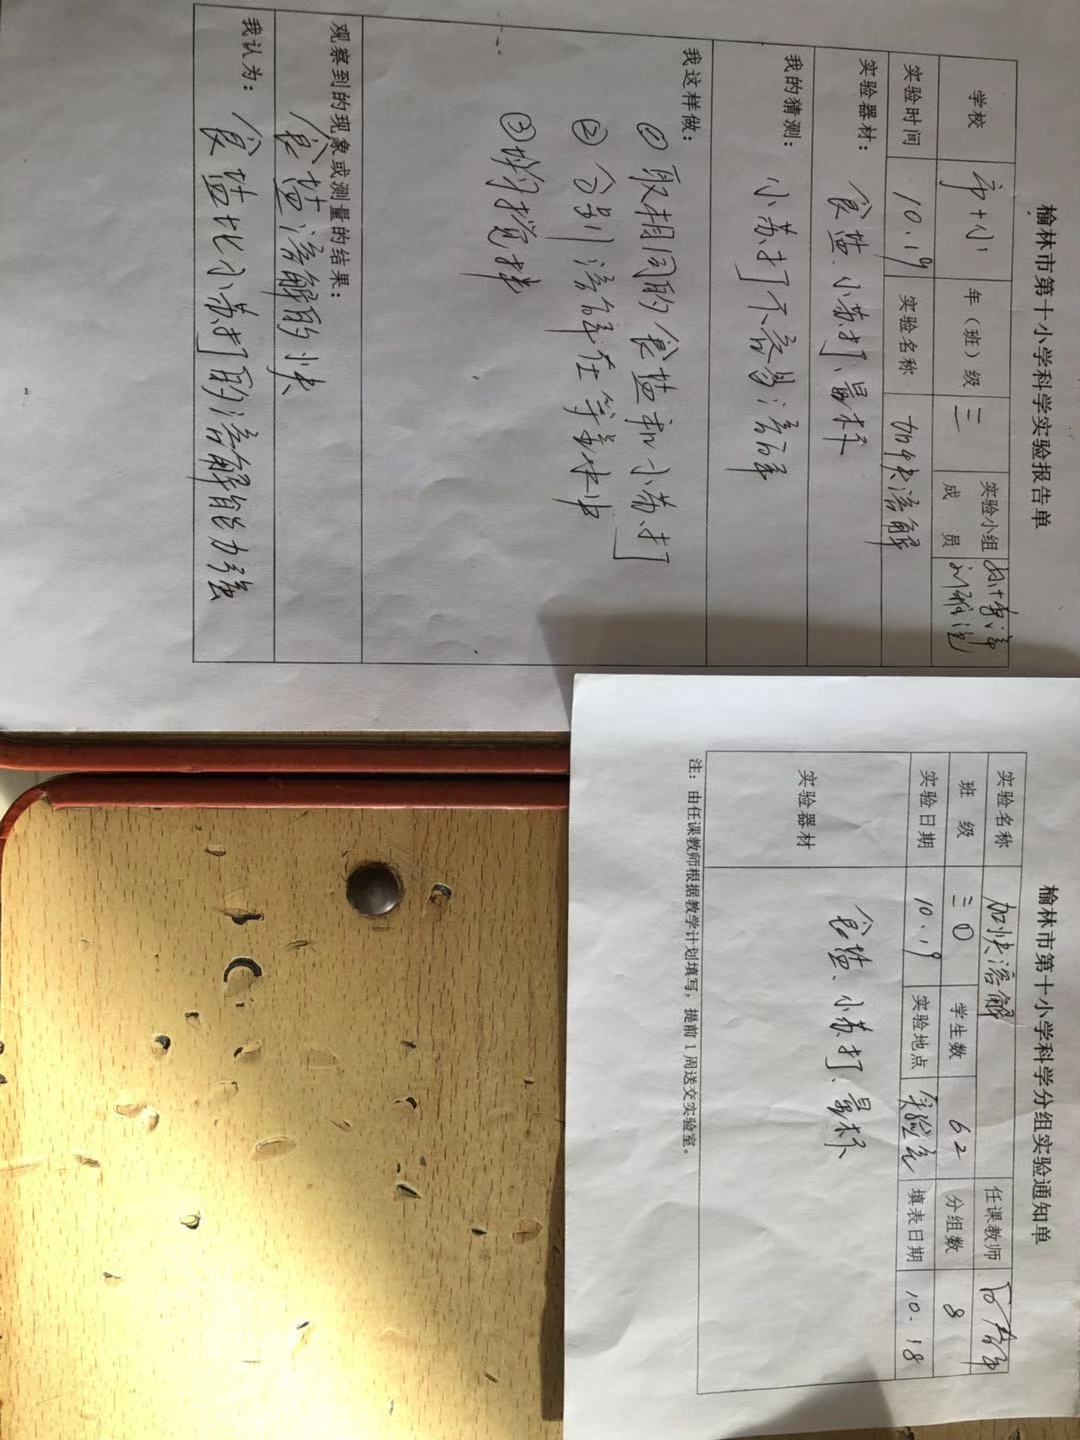 榆林市第十小学科学实验报告单
学校 市十小 年（班）级 三 实验小组成员
实验时间 10.19 实验名称 加快溶解
实验器材： 食盐、小苏打、量杯
我的猜测： 小苏打不容易溶解
我这样做：
① 取相同的食盐和小苏打
② 分别溶解在等量水中
③ 搅拌
观察到的现象或测量的结果：
食盐溶解的快
我认为：
食盐比小苏打的溶解能力强
榆林市第十小学科学分组实验通知单
实验名称 加快溶解 任课教师
班 级 三① 学生数 62 分组数 8
实验日期 10.19 实验地点 实验室 填表日期 10.18
实验器材 食盐、小苏打、量杯
注：由任课教师根据教学计划填写，提前1周送交实验室。